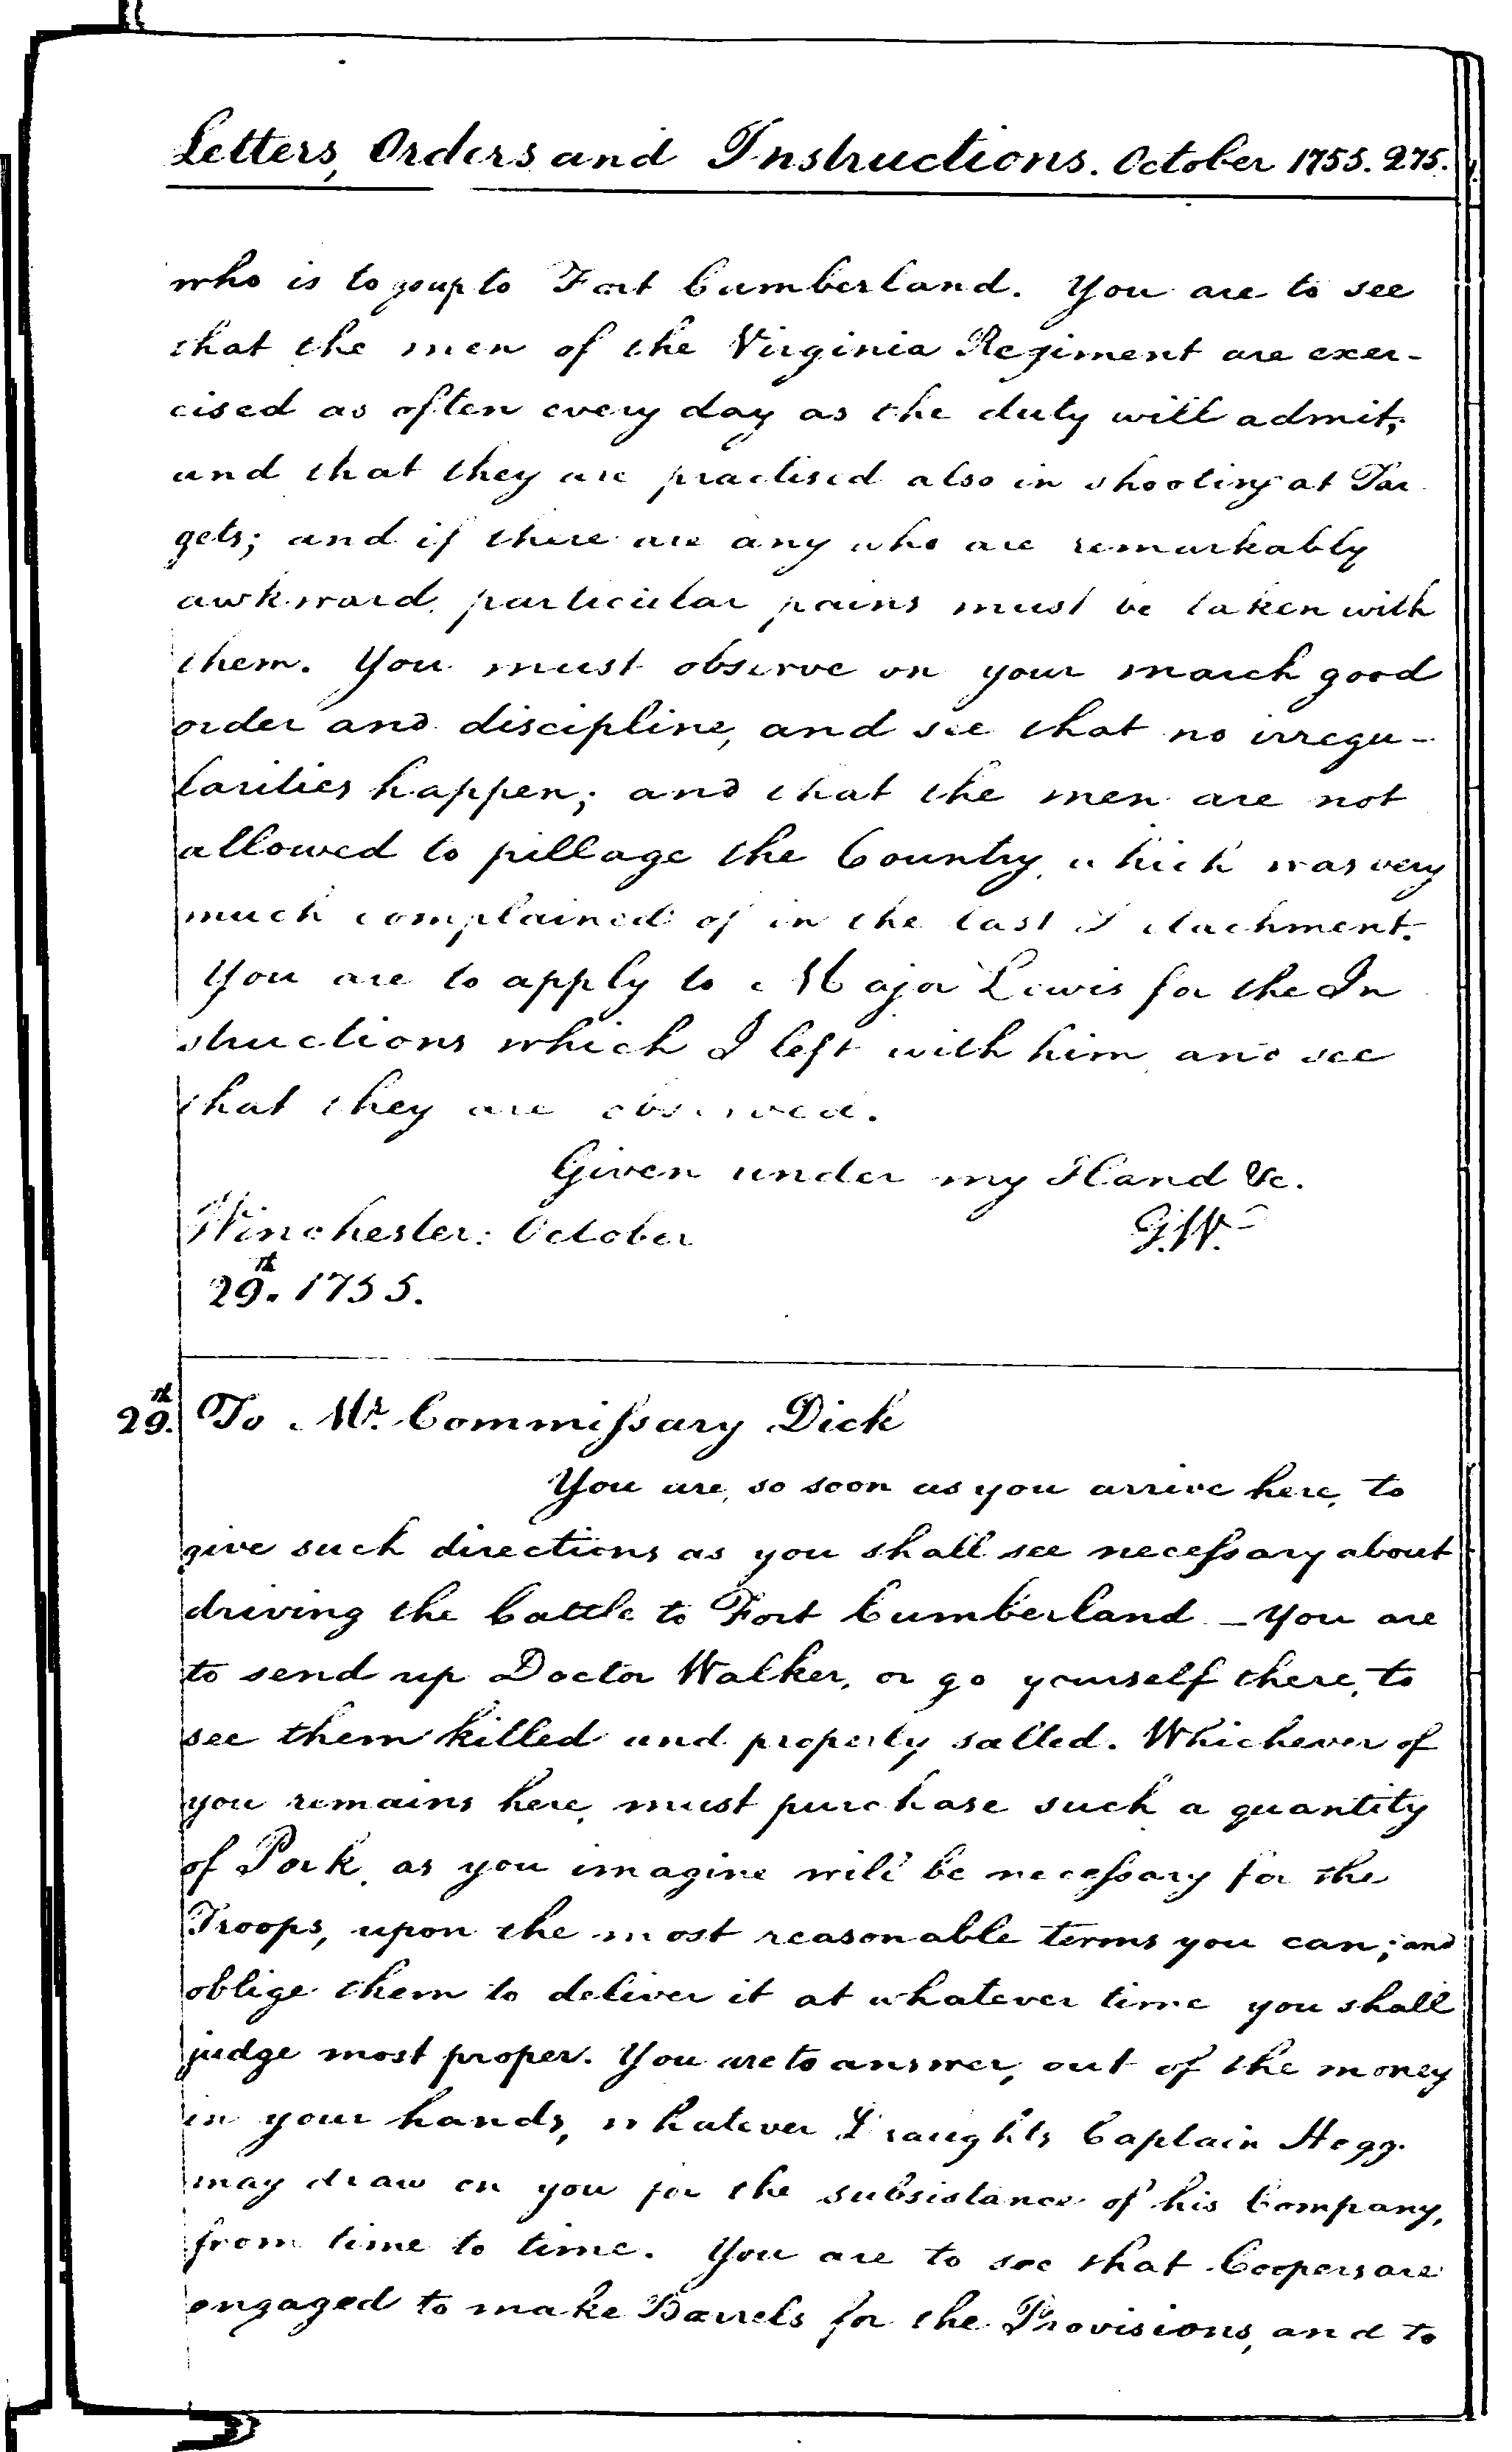 Letters, Orders and Instructions. October 1755. 275.
who is to go up to Fort Cumberland. You are to see
that the men of the Virginia Regiment are exer-
cised as often every day as the duty will admit;
and that they are practised also in shooting at Tar
gets; and if there are any who are remarkably
awkward, particular pains must be taken with
them. You must observe on your march good
order and discipline, and see that no irregu-
larities happen; and that the men are not
allowed to pillage the Country, which was very
much complained of in the last Detachment.
You are to apply to Major Lewis for the In
structions which I left with him and see
that they are observed.
Given under my Hand &c.
Winchester: October G.W.
29.th 1755.
29.th To Mr. Commiſsary Dick
You are, so soon as you arrive here, to
give such directions as you shall see neceſsary about
driving the Cattle to Fort Cumberland – You are
to send up Doctor Walker, or go yourself there, to
see them killed and properly salted. Whichever of
you remains here, must purchase such a quantity
of Pork, as you imagine will be neceſsary for the
Troops, upon the most reasonable terms you can; and
oblige them to deliver it at whatever time you shall
judge most proper. You are to answer, out of the money
in your hands, whatever Draughts Captain Hogg
may draw on you for the subsistance of his Company,
from time to time. You are to see that Coopers are
engaged to make Barrels for the Provisions, and to